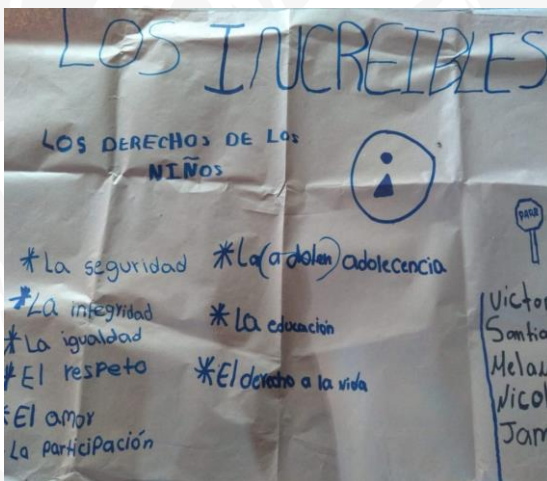 LOS INCREIBLES
LOS DERECHOS DE LOS
NIÑOS
PARE
*La seguridad
*La integridad
*La igualdad
*El respeto
*El amor
La participación
*La (a dolen) adolecencia
*La educación
*El derecho a la vida
Victor
Santia
Nicol